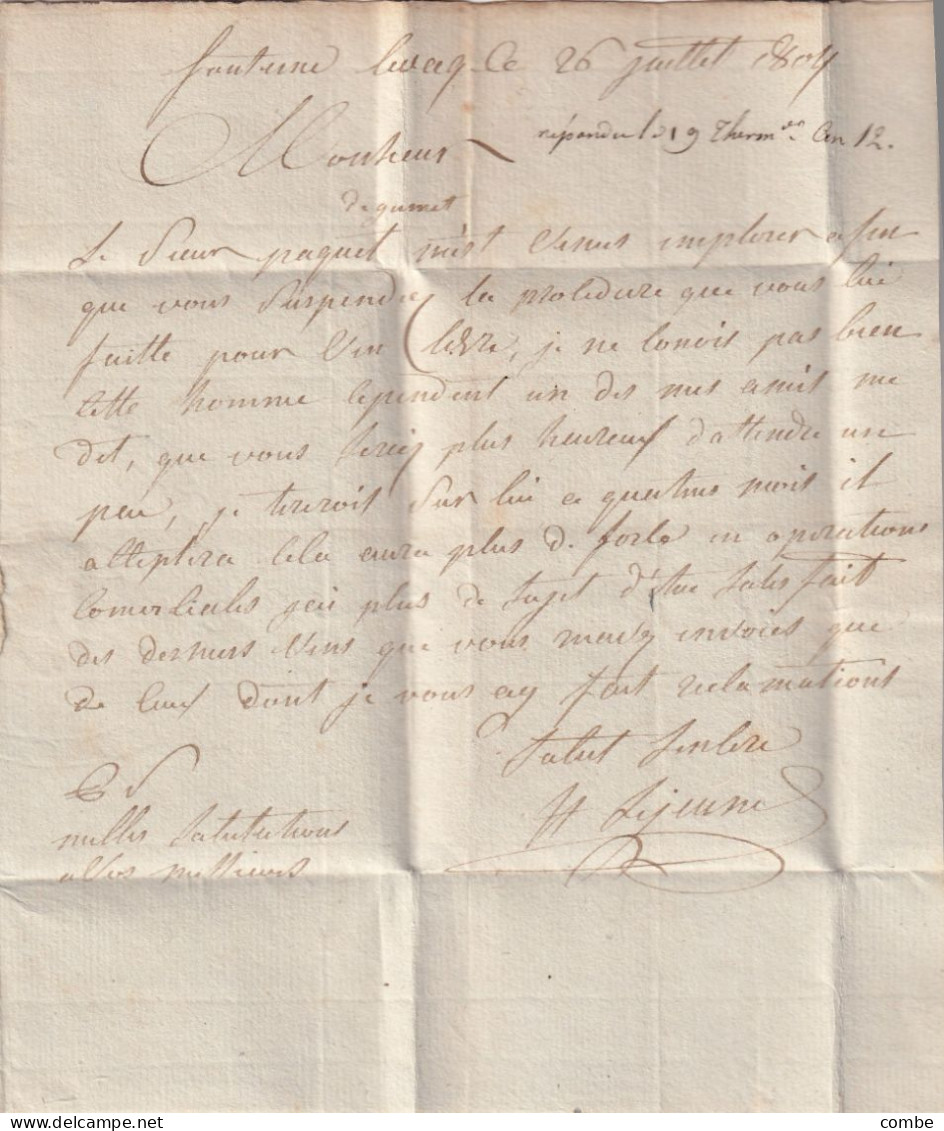 fonteine levaq Ce 26 juillet 1804
répondu le 19 Therm.or An 12.
Monsieur
de gumet
Le Sieur paquet mest venus implorer afin
que vous Suspendiez la procedure que vous lui
faitte pour Vin livre, je ne Conois pas bien
Cette homme Cependent un des mes amis me
dit, que vous Seriez plus heureux d'attendre un
peu, je tireroit Sur lui a quattres mois il
acseptera Cela aura plus de force en oporations
Comerciales jei plus de Sujet d'étre Satisfait
des derniers Vins que vous mavez envoiés que
de Ceux dont je vous ay fait reclamationt
Salut Sincere
H Lejeune
PS
milles Salutations
a Vos messieurs
combe